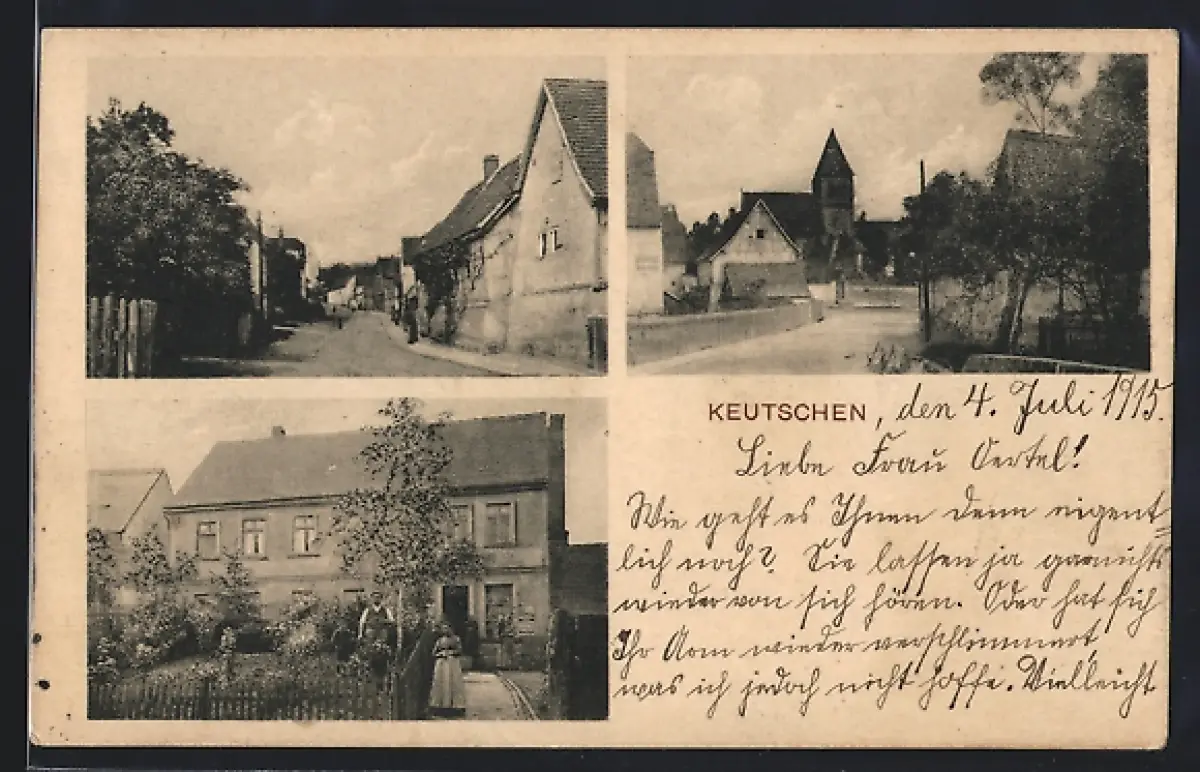 KEUTSCHEN, den 4. Juli 1915.
Liebe Frau Oertel!
Wie geht es Ihnen denn eigent-
lich noch? Sie lassen ja garnichts
wieder von sich hören. Oder hat sich
Ihr Arm wieder verschlimmert,
was ich jedoch nicht hoffe. Vielleicht